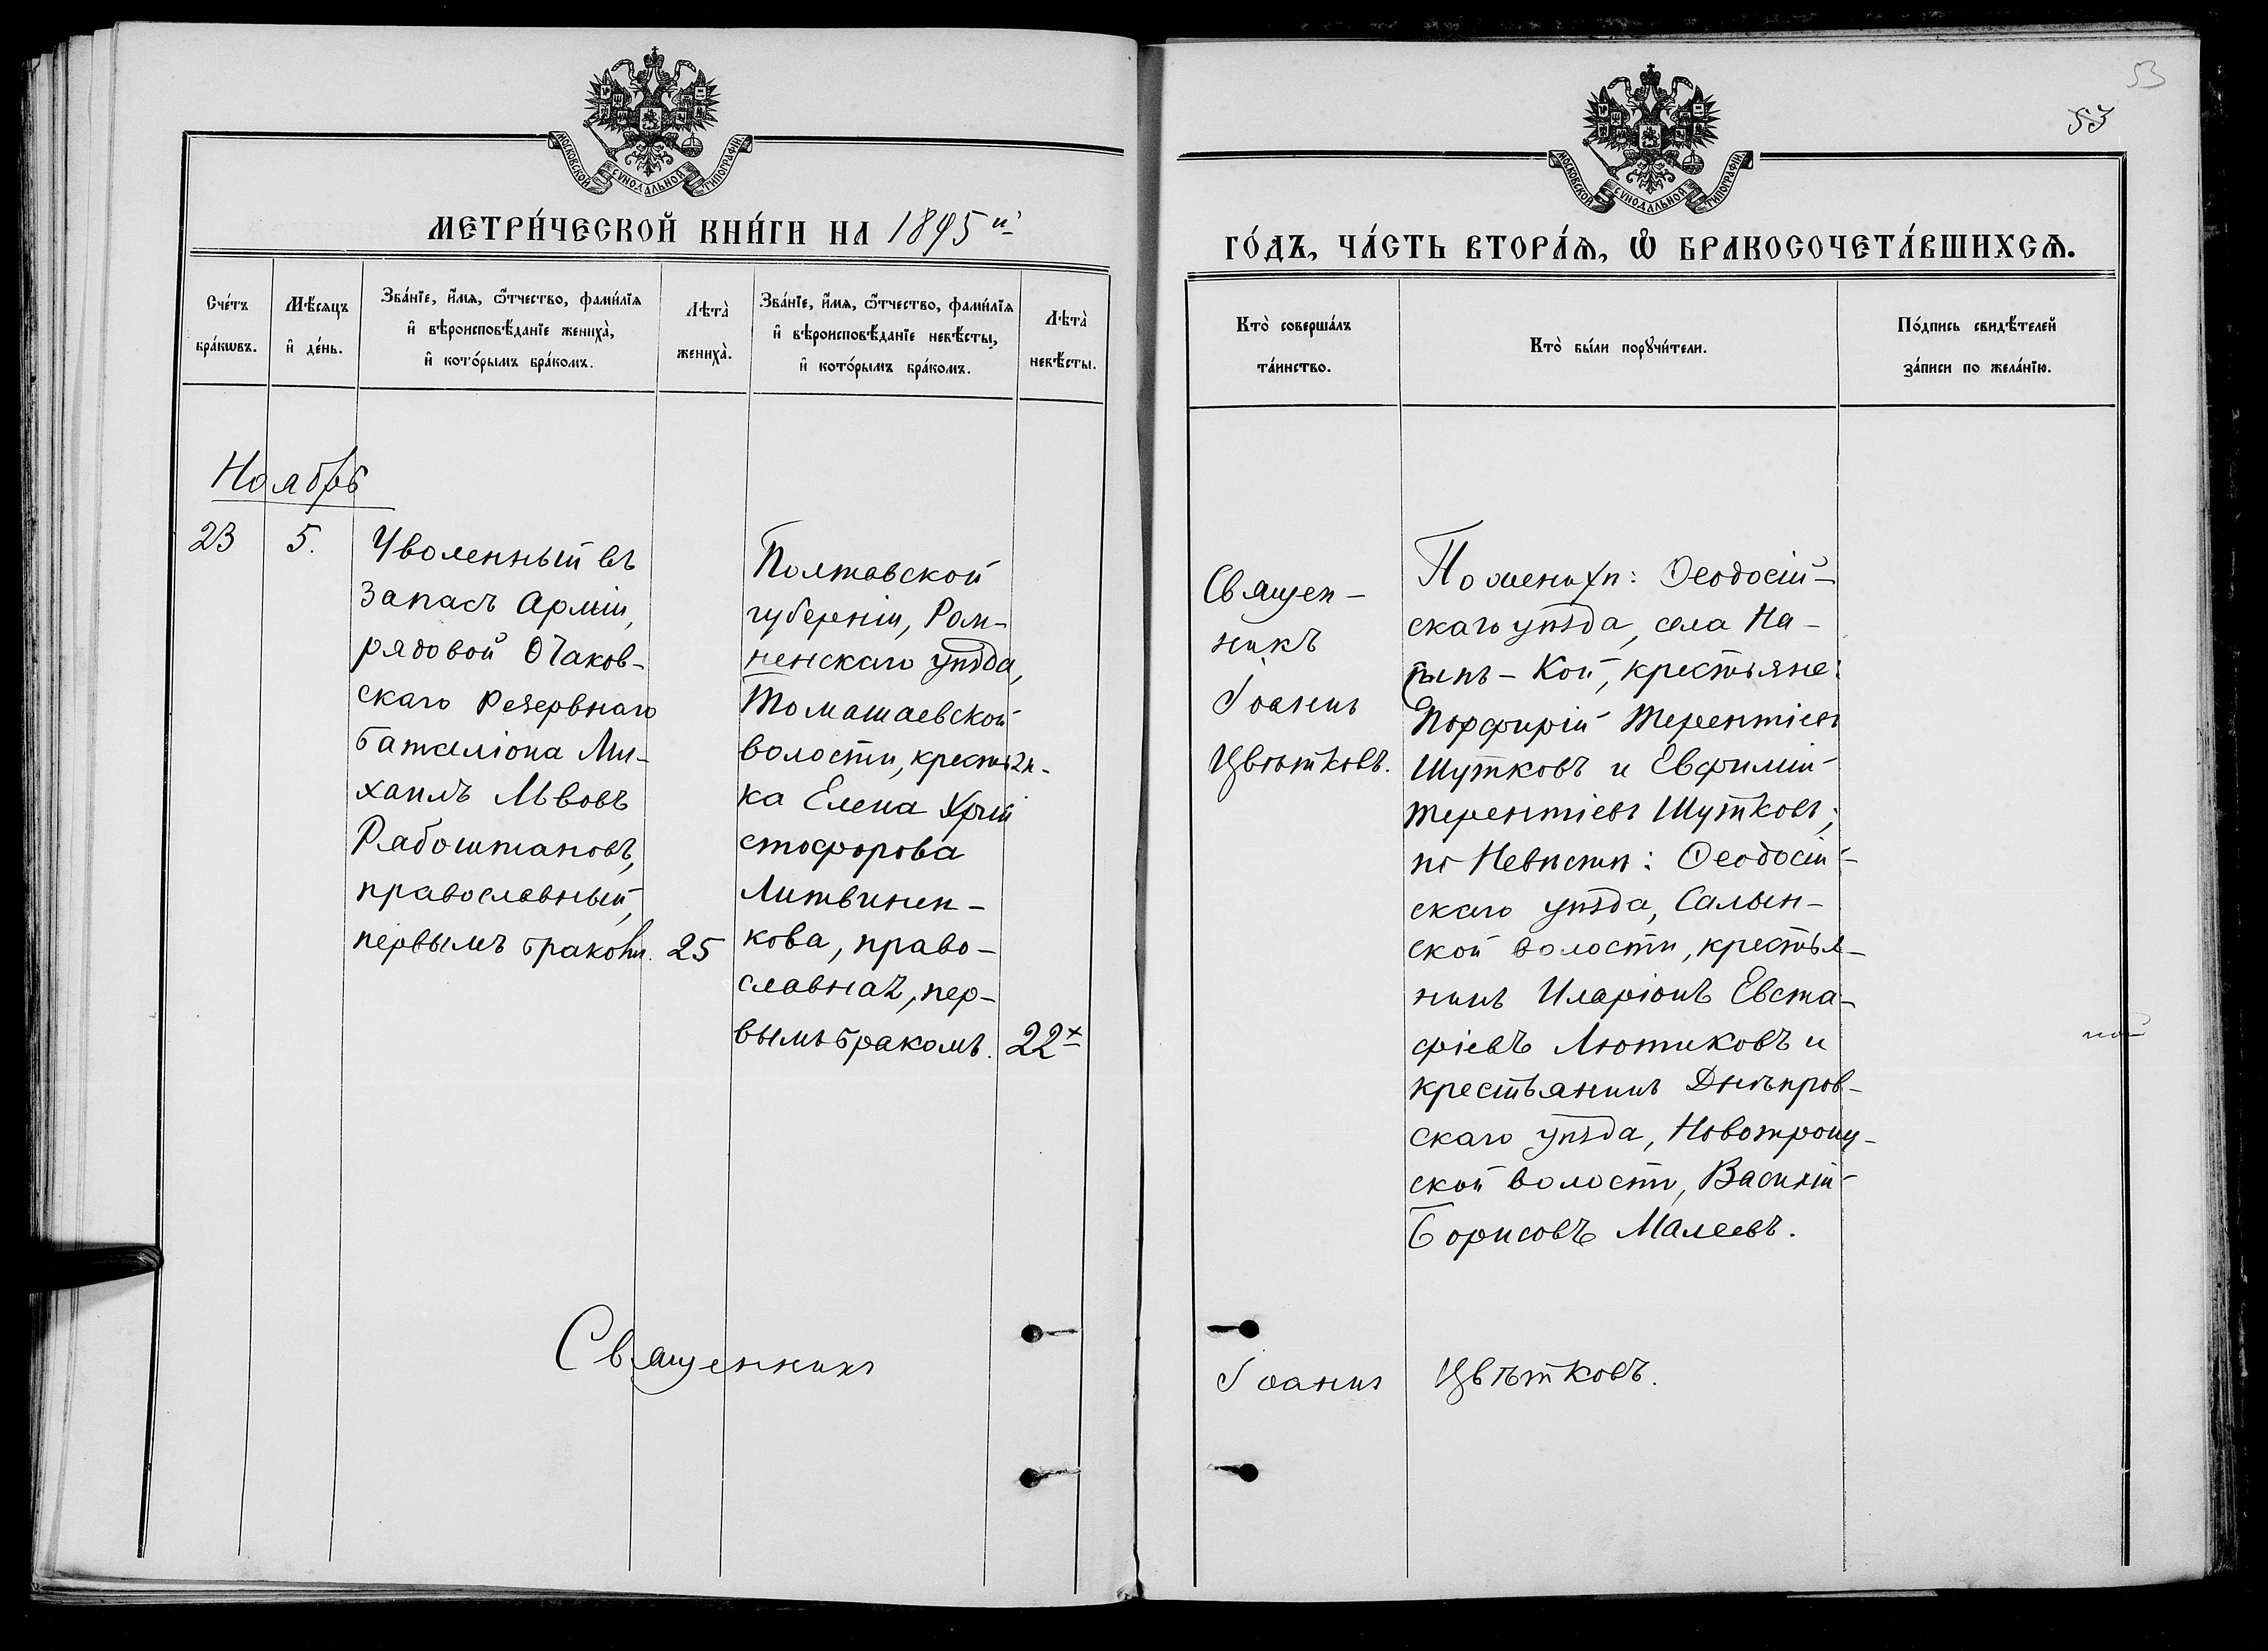 53
53
МОСКОВСКОЙ СѴНОДАЛЬНОЙ ТИПОГРАФІИ
МЕТРИ́ЧЕСКОЙ КНИ́ГИ НА 1895 й
Сче́тъ бра́кωвъ.
Мѣ́сяцъ и҆ де́нь.
Зва́нїе, и҆́мѧ, ѻ҆́тчество, фами́лїѧ
и҆ вѣроисповѣ́данїе жениха̀,
и҆ кото́рымъ бра́комъ.
Лѣта̀ жениха̀.
Зва́нїе, и҆́мѧ, ѻ҆́тчество, фами́лїѧ
и҆ вѣроисповѣ́данїе невѣ́сты,
и҆ кото́рымъ бра́комъ.
Лѣта̀ невѣ́сты.
Ноябрь
23
5.
Уволенный въ
Запасъ Арміи,
рядовой Очаков-
скаго Резервнаго
баталіона Ми-
хаилъ Львовъ
Рябоштановъ,
православный,
первымъ бракомъ.
25
Полтавской
губерніи, Ром-
ненскаго уѣзда,
Томашаевской
волости, крестьян-
ка Елена Хри
стофорова
Литвинен-
кова, право-
славная, пер-
вымъ бракомъ.
22
Священникъ
МОСКОВСКОЙ СѴНОДАЛЬНОЙ ТИПОГРАФІИ
ГО́ДЪ, ЧА́СТЬ ВТОРА́Ѧ, Ѡ҆ БРАКОСОЧЕТА́ВШИХСѦ.
Кто̀ соверша́лъ
та́инство.
Кто̀ бы́ли порꙋчи́тели.
По́дпись свидѣ́телей
за́писи по жела́нїю.
Священ-
никъ
Іоаннъ
Цвѣтковъ.
По женихѣ: Ѳеодосій-
скаго уѣзда, села На-
Кой, крестьяне:
Порфирій Терентіевъ
Шутковъ и Евфимій
Терентіевъ Шутковъ;
по Невѣстѣ: Ѳеодосій-
скаго уѣзда, Салын-
ской волости, крестья-
нинъ Иларіонъ Евста-
фіевъ Лютиковъ и
крестьянинъ Днѣпров-
скаго уѣзда, Новотроиц-
ской волости, Василій
Борисовъ Малеевъ.
Іоаннъ Цвѣтковъ.